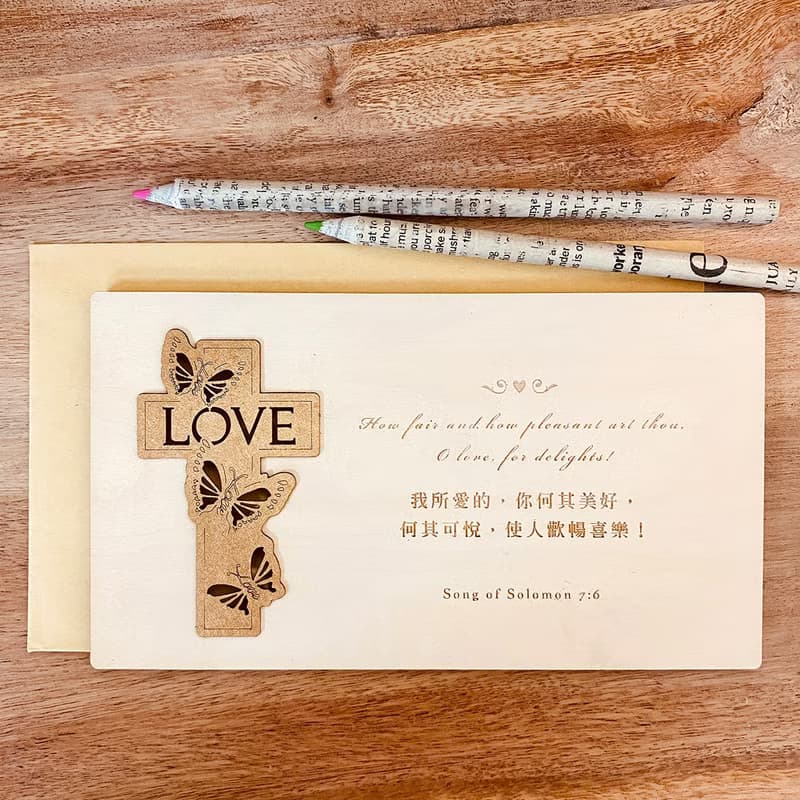 LOVE
How fair and how pleasant art thou,
O love, for delights!
我所愛的，你何其美好，
何其可悅，使人歡暢喜樂！
Song of Solomon 7:6